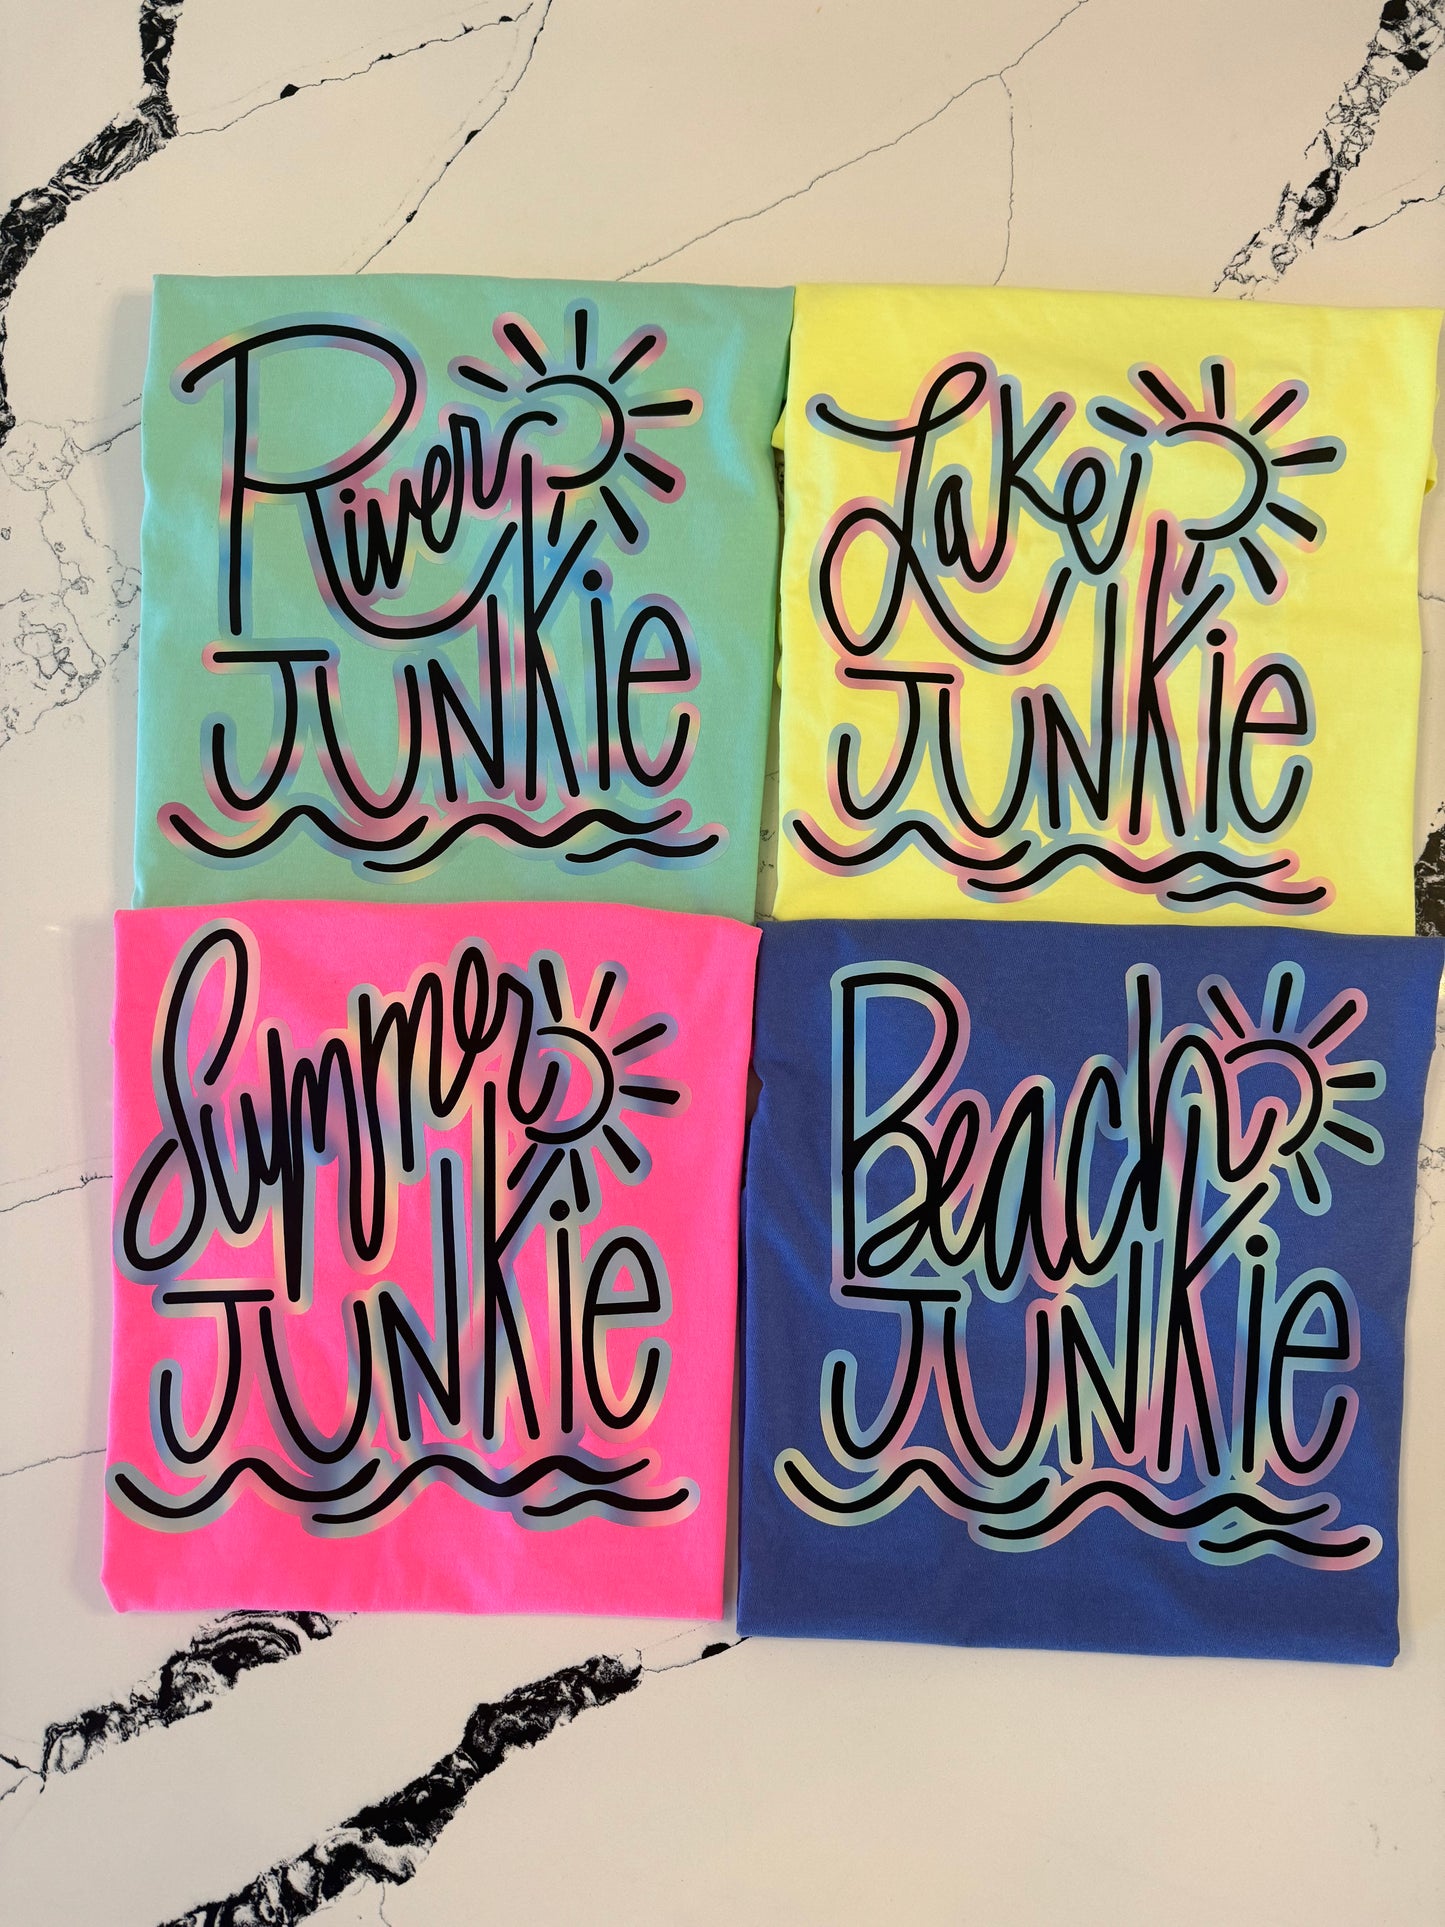 River
JUNKie
Lake
JUNKie
Summer
JUNKie
Beach
JUNKie